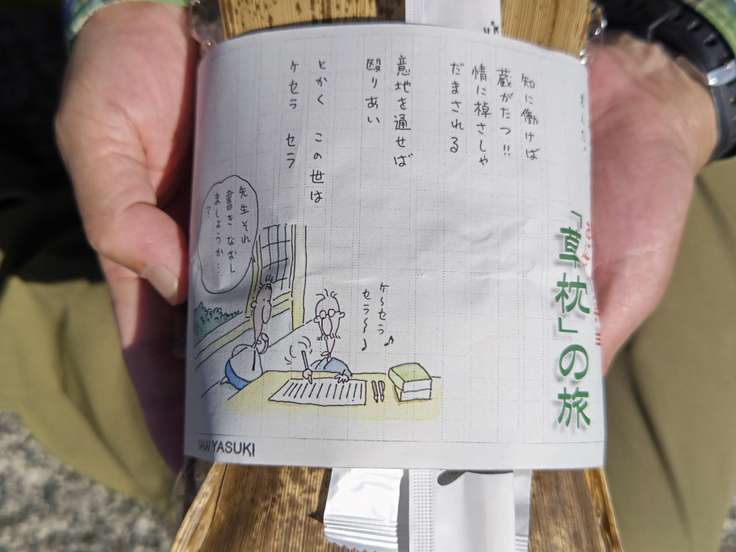 「草枕」の旅
知に働けば
蔵がたつ!!
情に棹さしゃ
だまされる
意地を通せば
殴りあい
とかく この世は
ケセラ セラ
ケ〜セラ♪
セラ〜〜♪
先生それ
書きなおし
ましょうか…
?
YASUKI